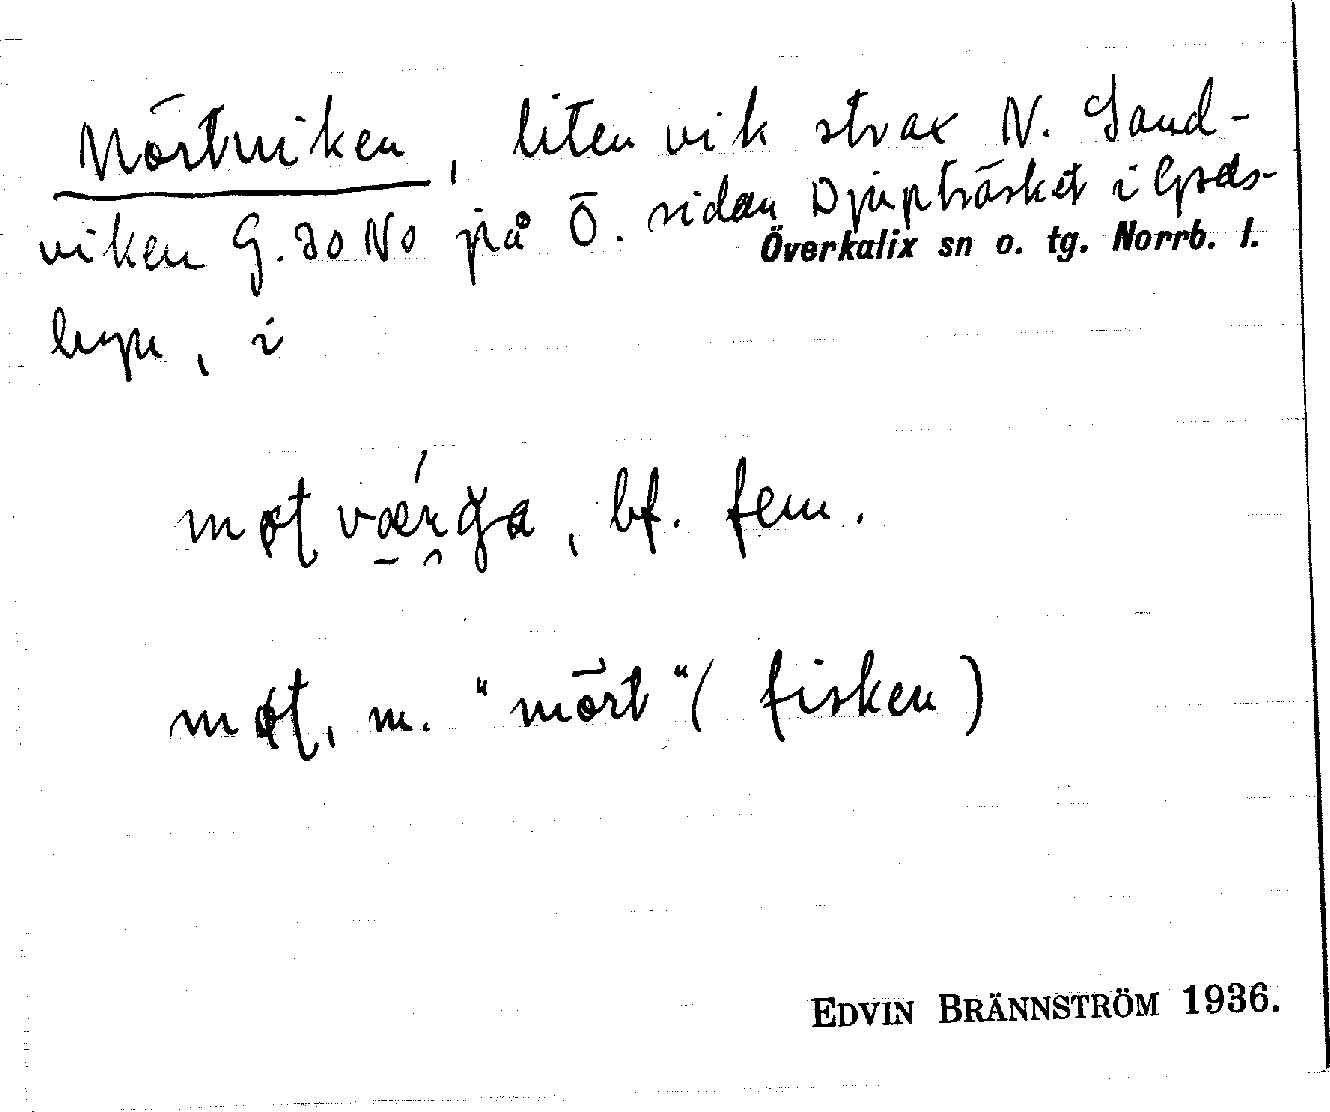 Mörtviken, liten vik strax N. Sand-
viken G. 30 No på Ö. sidan Djupträsket i Gyds-
Överkalix sn o. tg. Norrb. l.
byn, i
motværga, bf. fem.
mot, m. "mört" (fisken)
EDVIN BRÄNNSTRÖM 1936.